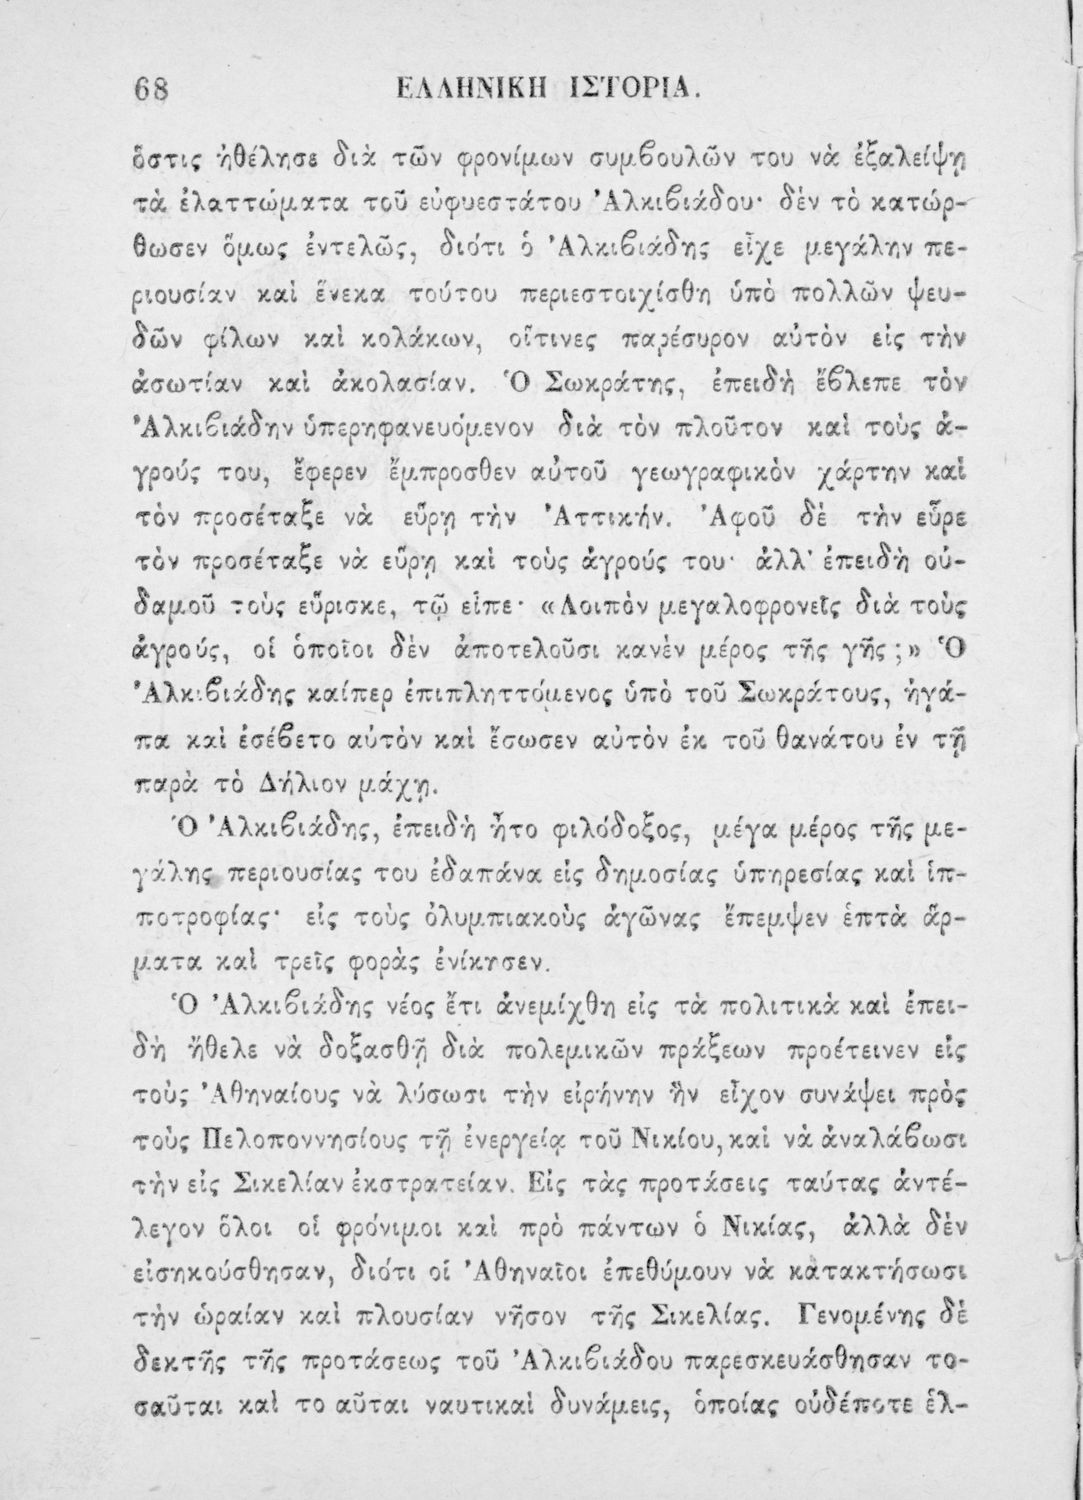 68 ΕΛΛΗΝΙΚΗ ΙΣΤΟΡΙΑ.
ὅστις ἠθέλησε διὰ τῶν φρονίμων συμβουλῶν του νὰ ἐξαλείψῃ
τὰ ἐλαττώματα τοῦ εὐφυεστάτου Ἀλκιβιάδου· δὲν τὸ κατώρ-
θωσεν ὅμως ἐντελῶς, διότι ὁ Ἀλκιβιάδης εἶχε μεγάλην πε-
ριουσίαν καὶ ἕνεκα τούτου περιεστοιχίσθη ὑπὸ πολλῶν ψευ-
δῶν φίλων καὶ κολάκων, οἵτινες παρέσυρον αὐτὸν εἰς τὴν
ἀσωτίαν καὶ ἀκολασίαν. Ὁ Σωκράτης, ἐπειδὴ ἔβλεπε τὸν
Ἀλκιβιάδην ὑπερηφανευόμενον διὰ τὸν πλοῦτον καὶ τοὺς ἀ-
γρούς του, ἔφερεν ἔμπροσθεν αὐτοῦ γεωγραφικὸν χάρτην καὶ
τὸν προσέταξε νὰ εὕρῃ τὴν Ἀττικήν. Ἀφοῦ δὲ τὴν εὗρε
τὸν προσέταξε νὰ εὕρῃ καὶ τοὺς ἀγρούς του· ἀλλ' ἐπειδὴ οὐ-
δαμοῦ τοὺς εὕρισκε, τῷ εἶπε· «Λοιπὸν μεγαλοφρονεῖς διὰ τοὺς
ἀγρούς, οἱ ὁποῖοι δὲν ἀποτελοῦσι κανὲν μέρος τῆς γῆς ;» Ὁ
Ἀλκιβιάδης καίπερ ἐπιπληττόμενος ὑπὸ τοῦ Σωκράτους, ἠγά-
πα καὶ ἐσέβετο αὐτὸν καὶ ἔσωσεν αὐτὸν ἐκ τοῦ θανάτου ἐν τῇ
παρὰ τὸ Δήλιον μάχῃ.
Ὁ Ἀλκιβιάδης, ἐπειδὴ ἦτο φιλόδοξος, μέγα μέρος τῆς με-
γάλης περιουσίας του ἐδαπάνα εἰς δημοσίας ὑπηρεσίας καὶ ἱπ-
ποτροφίας· εἰς τοὺς ὀλυμπιακοὺς ἀγῶνας ἔπεμψεν ἑπτὰ ἅρ-
ματα καὶ τρεῖς φορὰς ἐνίκησεν.
Ὁ Ἀλκιβιάδης νέος ἔτι ἀνεμίχθη εἰς τὰ πολιτικὰ καὶ ἐπει-
δὴ ἤθελε νὰ δοξασθῇ διὰ πολεμικῶν πράξεων προέτεινεν εἰς
τοὺς Ἀθηναίους νὰ λύσωσι τὴν εἰρήνην ἣν εἶχον συνάψει πρὸς
τοὺς Πελοποννησίους τῇ ἐνεργείᾳ τοῦ Νικίου, καὶ νὰ ἀναλάβωσι
τὴν εἰς Σικελίαν ἐκστρατείαν. Εἰς τὰς προτάσεις ταύτας ἀντέ-
λεγον ὅλοι οἱ φρόνιμοι καὶ πρὸ πάντων ὁ Νικίας, ἀλλὰ δὲν
εἰσηκούσθησαν, διότι οἱ Ἀθηναῖοι ἐπεθύμουν νὰ κατακτήσωσι
τὴν ὡραίαν καὶ πλουσίαν νῆσον τῆς Σικελίας. Γενομένης δὲ
δεκτῆς τῆς προτάσεως τοῦ Ἀλκιβιάδου παρεσκευάσθησαν το-
σαῦται καὶ το αῦται ναυτικαὶ δυνάμεις, ὁποίας οὐδέποτε ἑλ-